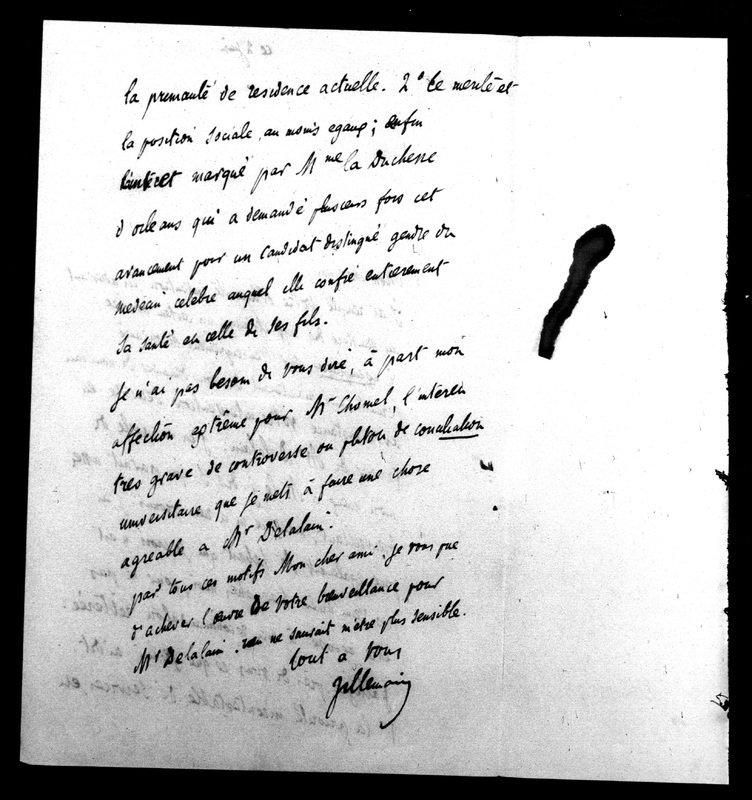 la primauté de residence actuelle. 2° le merite et
la position sociale, au moins egaux ; enfin
l'intéret marqué par Mme la Duchesse
d orleans qui a demandé plusieurs fois cet
avancement pour un Candidat distingué gendre du
medecin celebre auquel elle confie entierement
sa santé et celle de ses fils.
Je n'ai pas besoin de vous dire, à part mon
affection extrême pour Mr Chomel, l'interet
tres grave de controverse ou plutot de conciliation
universitaire que je mets à faire une chose
agreable a Mr Delalain.
par tous ces motifs Mon cher ami, je vous prie
d'achever l'œuvre de votre bienveillance pour
Mr Delalain. rien ne saurait m'etre plus sensible.
tout a vous
Villemain